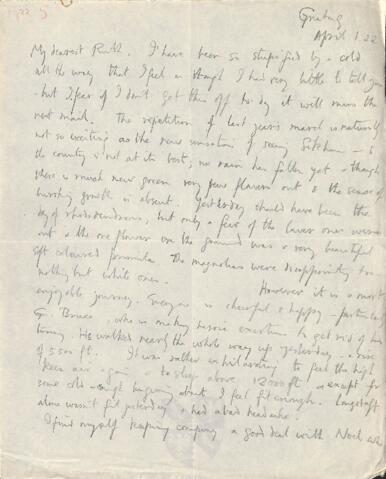 Gnatong
April 1. 22
My dearest Ruth. I have been so stupified by a cold
all the way that I feel as though I had very little to tell you
- but I fear if I don't get this off to-day it will miss the
next mail. The repetition of last year's march is naturally
not so exciting as the new sensation of seeing Sikkim - &
the country is not at its best; no rain has fallen yet & though
there is much new green very few flowers out & the sense of
bursting growth is absent. Yesterday should have been the
day of rhododendrons, but only a few of the lower ones were
out & the one flower on the ground was a very beautiful
soft coloured primula. The magnolias were disappointing too -
nothing but white ones. However it is a most
enjoyable journey. Everyone is cheerful & happy - particularly
G. Bruce, who is making heroic exertions to get rid of his
tummy. He walked nearly the whole way up yesterday - a rise
of 5,500 ft. It was rather exhilarating to feel the high
keen air again & to sleep above 12000 ft & except for
some cold & cough hanging about I feel fit enough. Longstaff
alone wasn't fit yesterday & had a bad headache.
I find myself keeping company a good deal with Noel who